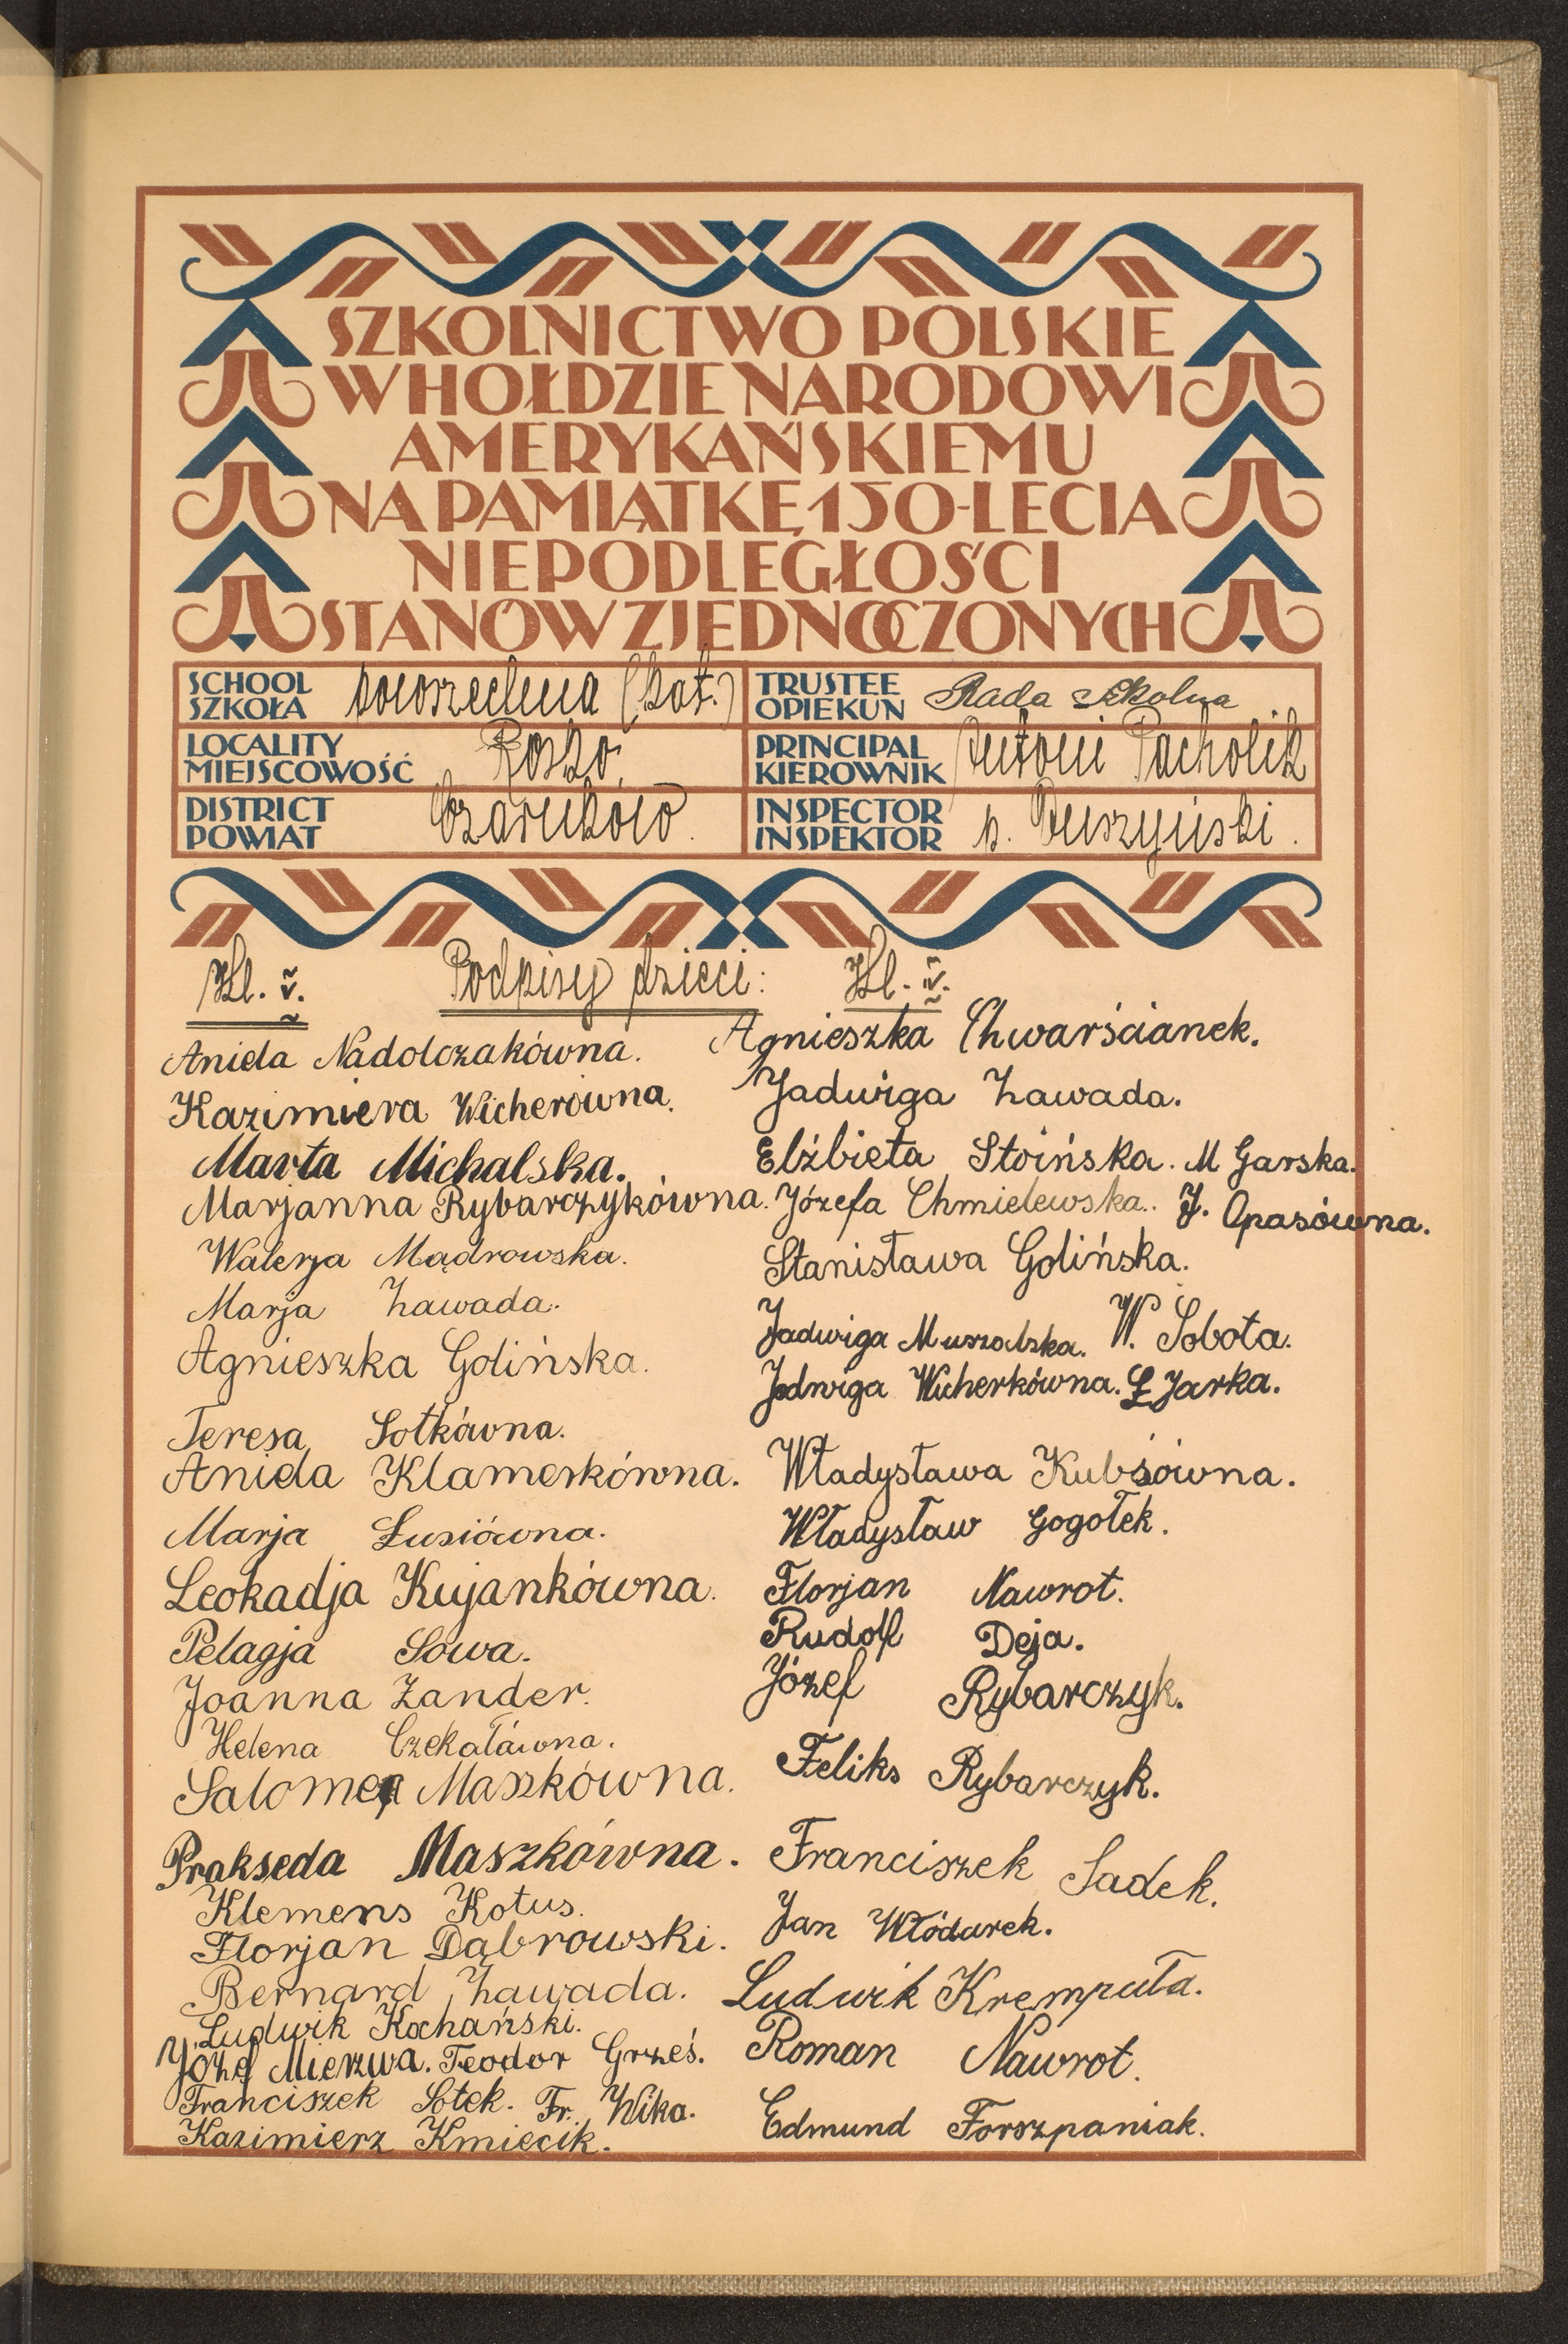 SZKOLNICTWO POLSKIE
W HOŁDZIE NARODOWI
AMERYKAŃSKIEMU
NA PAMIĄTKĘ 150-LECIA
NIEPODLEGŁOŚCI
STANÓW ZJEDNOCZONYCH
SCHOOL
SZKOŁA
powszechna (kat.)
TRUSTEE
OPIEKUN
Rada Szkolna
LOCALITY
MIEJSCOWOŚĆ
Rosko
PRINCIPAL
KIEROWNIK
Antoni Pacholik
DISTRICT
POWIAT
Czarnków
INSPECTOR
INSPEKTOR
p. Duszyński.
Kl. V. Podpisy dzieci: Kl. IV.
Aniela Nadolczakówna.
Kazimiera Wicherówna.
Marta Michalska.
Marjanna Rybarczykówna.
Walerja Mądrowska.
Marja Zawada.
Agnieszka Golińska.
Teresa Sotkówna.
Aniela Klamerkówna.
Marja Łusiówna.
Leokadja Kujankówna.
Pelagja Sowa.
Joanna Zander.
Helena Czekałówna.
Salomea Maszkówna.
Prakseda Maszkówna.
Klemens Kotus.
Florjan Dąbrowski.
Bernard Zawada.
Ludwik Kochański.
Józef Mierzwa. Teodor Grześ.
Franciszek Sotek. Fr. Wika.
Kazimierz Kmiecik.
Agnieszka Chwarścianek.
Jadwiga Zawada.
Elżbieta Stoińska. M Garska.
Józefa Chmielewska. J. Opasówna.
Stanisława Golińska.
Jadwiga Muszalska. W. Sobota.
Jadwiga Wicherkówna. Ł Jarka.
Władysława Kubśówna.
Władysław Gogołek.
Florjan Nawrot.
Rudolf Deja.
Józef Rybarczyk.
Feliks Rybarczyk.
Franciszek Sadek.
Jan Włódarek.
Ludwik Krempuła.
Roman Nawrot.
Edmund Forszpaniak.